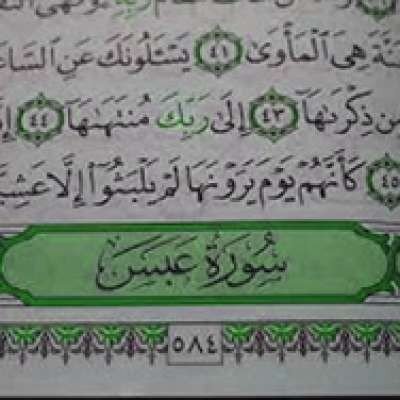 رَبِّهِ وَنَهَى
نَّةَ هِيَ الْمَأْوَىٰ ٤١ يَسْـَٔلُونَكَ عَنِ السَّا
مِن ذِكْرَىٰهَآ ٤٣ إِلَىٰ رَبِّكَ مُنتَهَىٰهَآ ٤٤ إِ
٤٥ كَأَنَّهُمْ يَوْمَ يَرَوْنَهَا لَمْ يَلْبَثُوٓا۟ إِلَّا عَشِيَّ
سُورَةُ عَبَسَ
٥٨٤